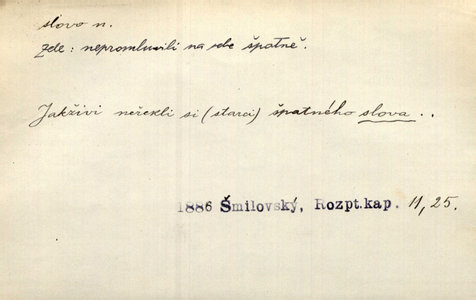 slovo n.
Zde: nepromluvili na sebe špatně.
Jakživi neřekli si (starci) špatného slova ..
1886 Šmilovský, Rozpt.kap. 11, 25.